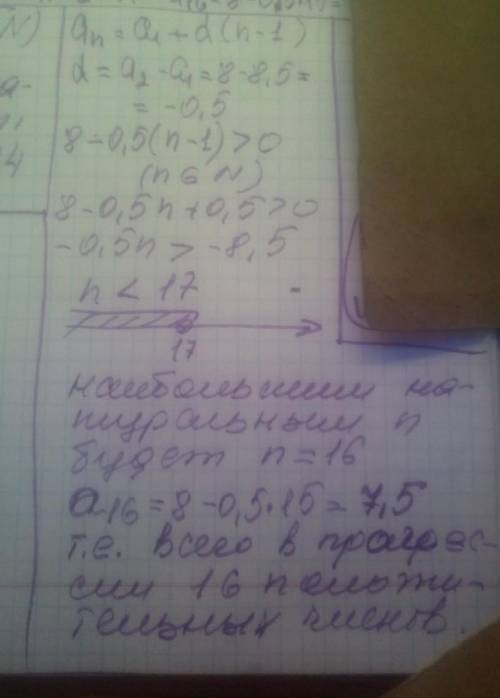 aₙ = a₁ + d(n-1)
d = a₂ - a₁ = 8 - 8,5 =
= -0,5
8 - 0,5(n-1) > 0
(n ∈ N)
8 - 0,5n + 0,5 > 0
-0,5n > -8,5
n < 17
17
наибольшим на-
туральным n
будет n = 16
a₁₆ = 8 - 0,5·15 = 7,5
т.е. всего в прогрес-
сии 16 положи-
тельных членов.